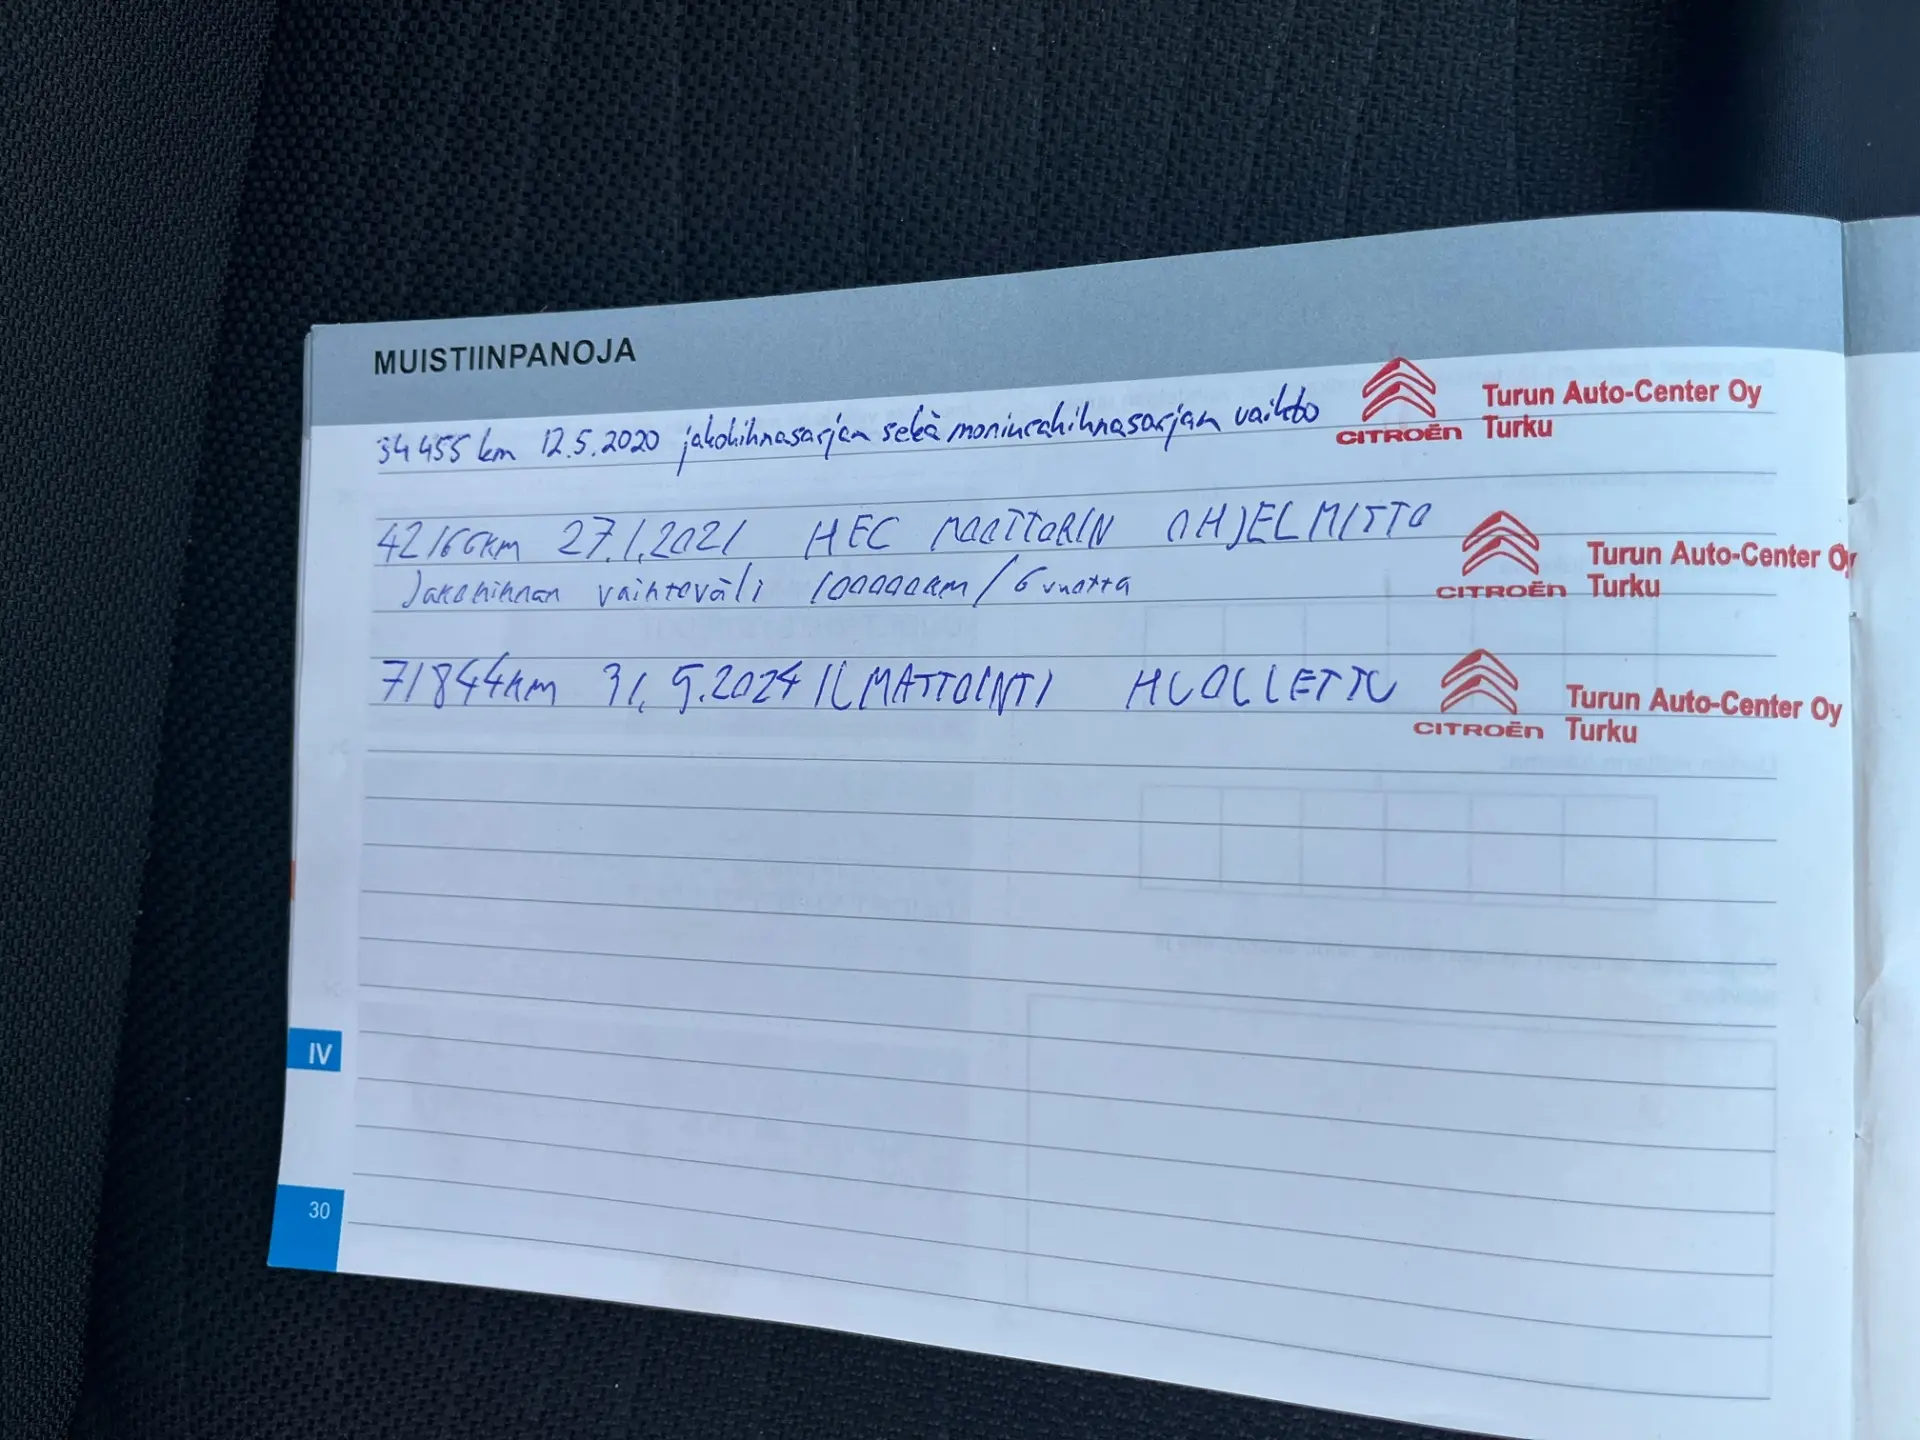 MUISTIINPANOJA
34 455 km 12.5.2020 jakohihnasarjan sekä moniurahihnasarjan vaihto
CITROËN
Turun Auto-Center Oy
Turku
42166km 27.1.2021 HEC MOOTTORIN OHJELMITTO
Jakohihnan vaihtoväli 100000km/6 vuotta
CITROËN
Turun Auto-Center Oy
Turku
71844km 31.5.2024 ILMASTOINTI HUOLLETTU
CITROËN
Turun Auto-Center Oy
Turku
IV
30